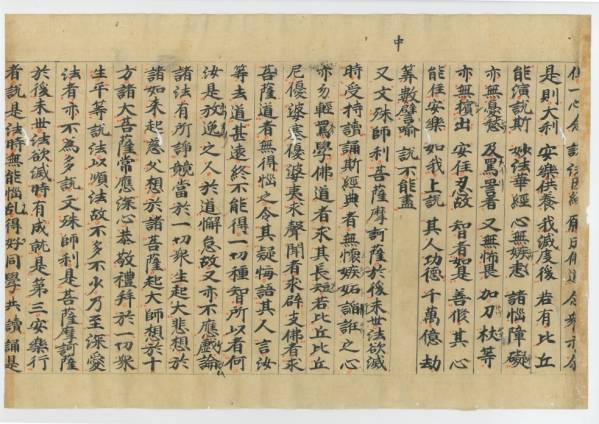 中
一心念 說法因緣 願 佛道 令衆亦
是則大利 安樂供養 我滅度後 若有比丘
能演說斯 妙法華經 心無嫉恚 諸惱障礙
亦無憂愁 及罵詈者 又無怖畏 加刀杖等
亦無擯出 安住忍故 智者如是 善脩其心
能住安樂 如我上說 其人功德 千萬億劫
筭數譬喻 說不能盡
又文殊師利菩薩摩訶薩於後末世法欲滅
時受持讀誦斯經典者無懷嫉妬諂誑之心
亦勿輕罵學佛道者求其長短若比丘比丘
尼優婆塞優婆夷求聲聞者求辟支佛者求
菩薩道者無得惱之令其疑悔語其人言汝
等去道甚遠終不能得一切種智所以者何
汝是放逸之人於道懈怠故又亦不應戲論
諸法有所諍競當於一切衆生起大悲想於
諸如來起慈父想於諸菩薩起大師想於十
方諸大菩薩常應深心恭敬禮拜於一切衆
生平等說法以順法故不多不少乃至深愛
法者亦不爲多說文殊師利是菩薩摩訶薩
於後末世法欲滅時有成就是第三安樂行
者說是法時無能惱乱得好同學共讀誦是